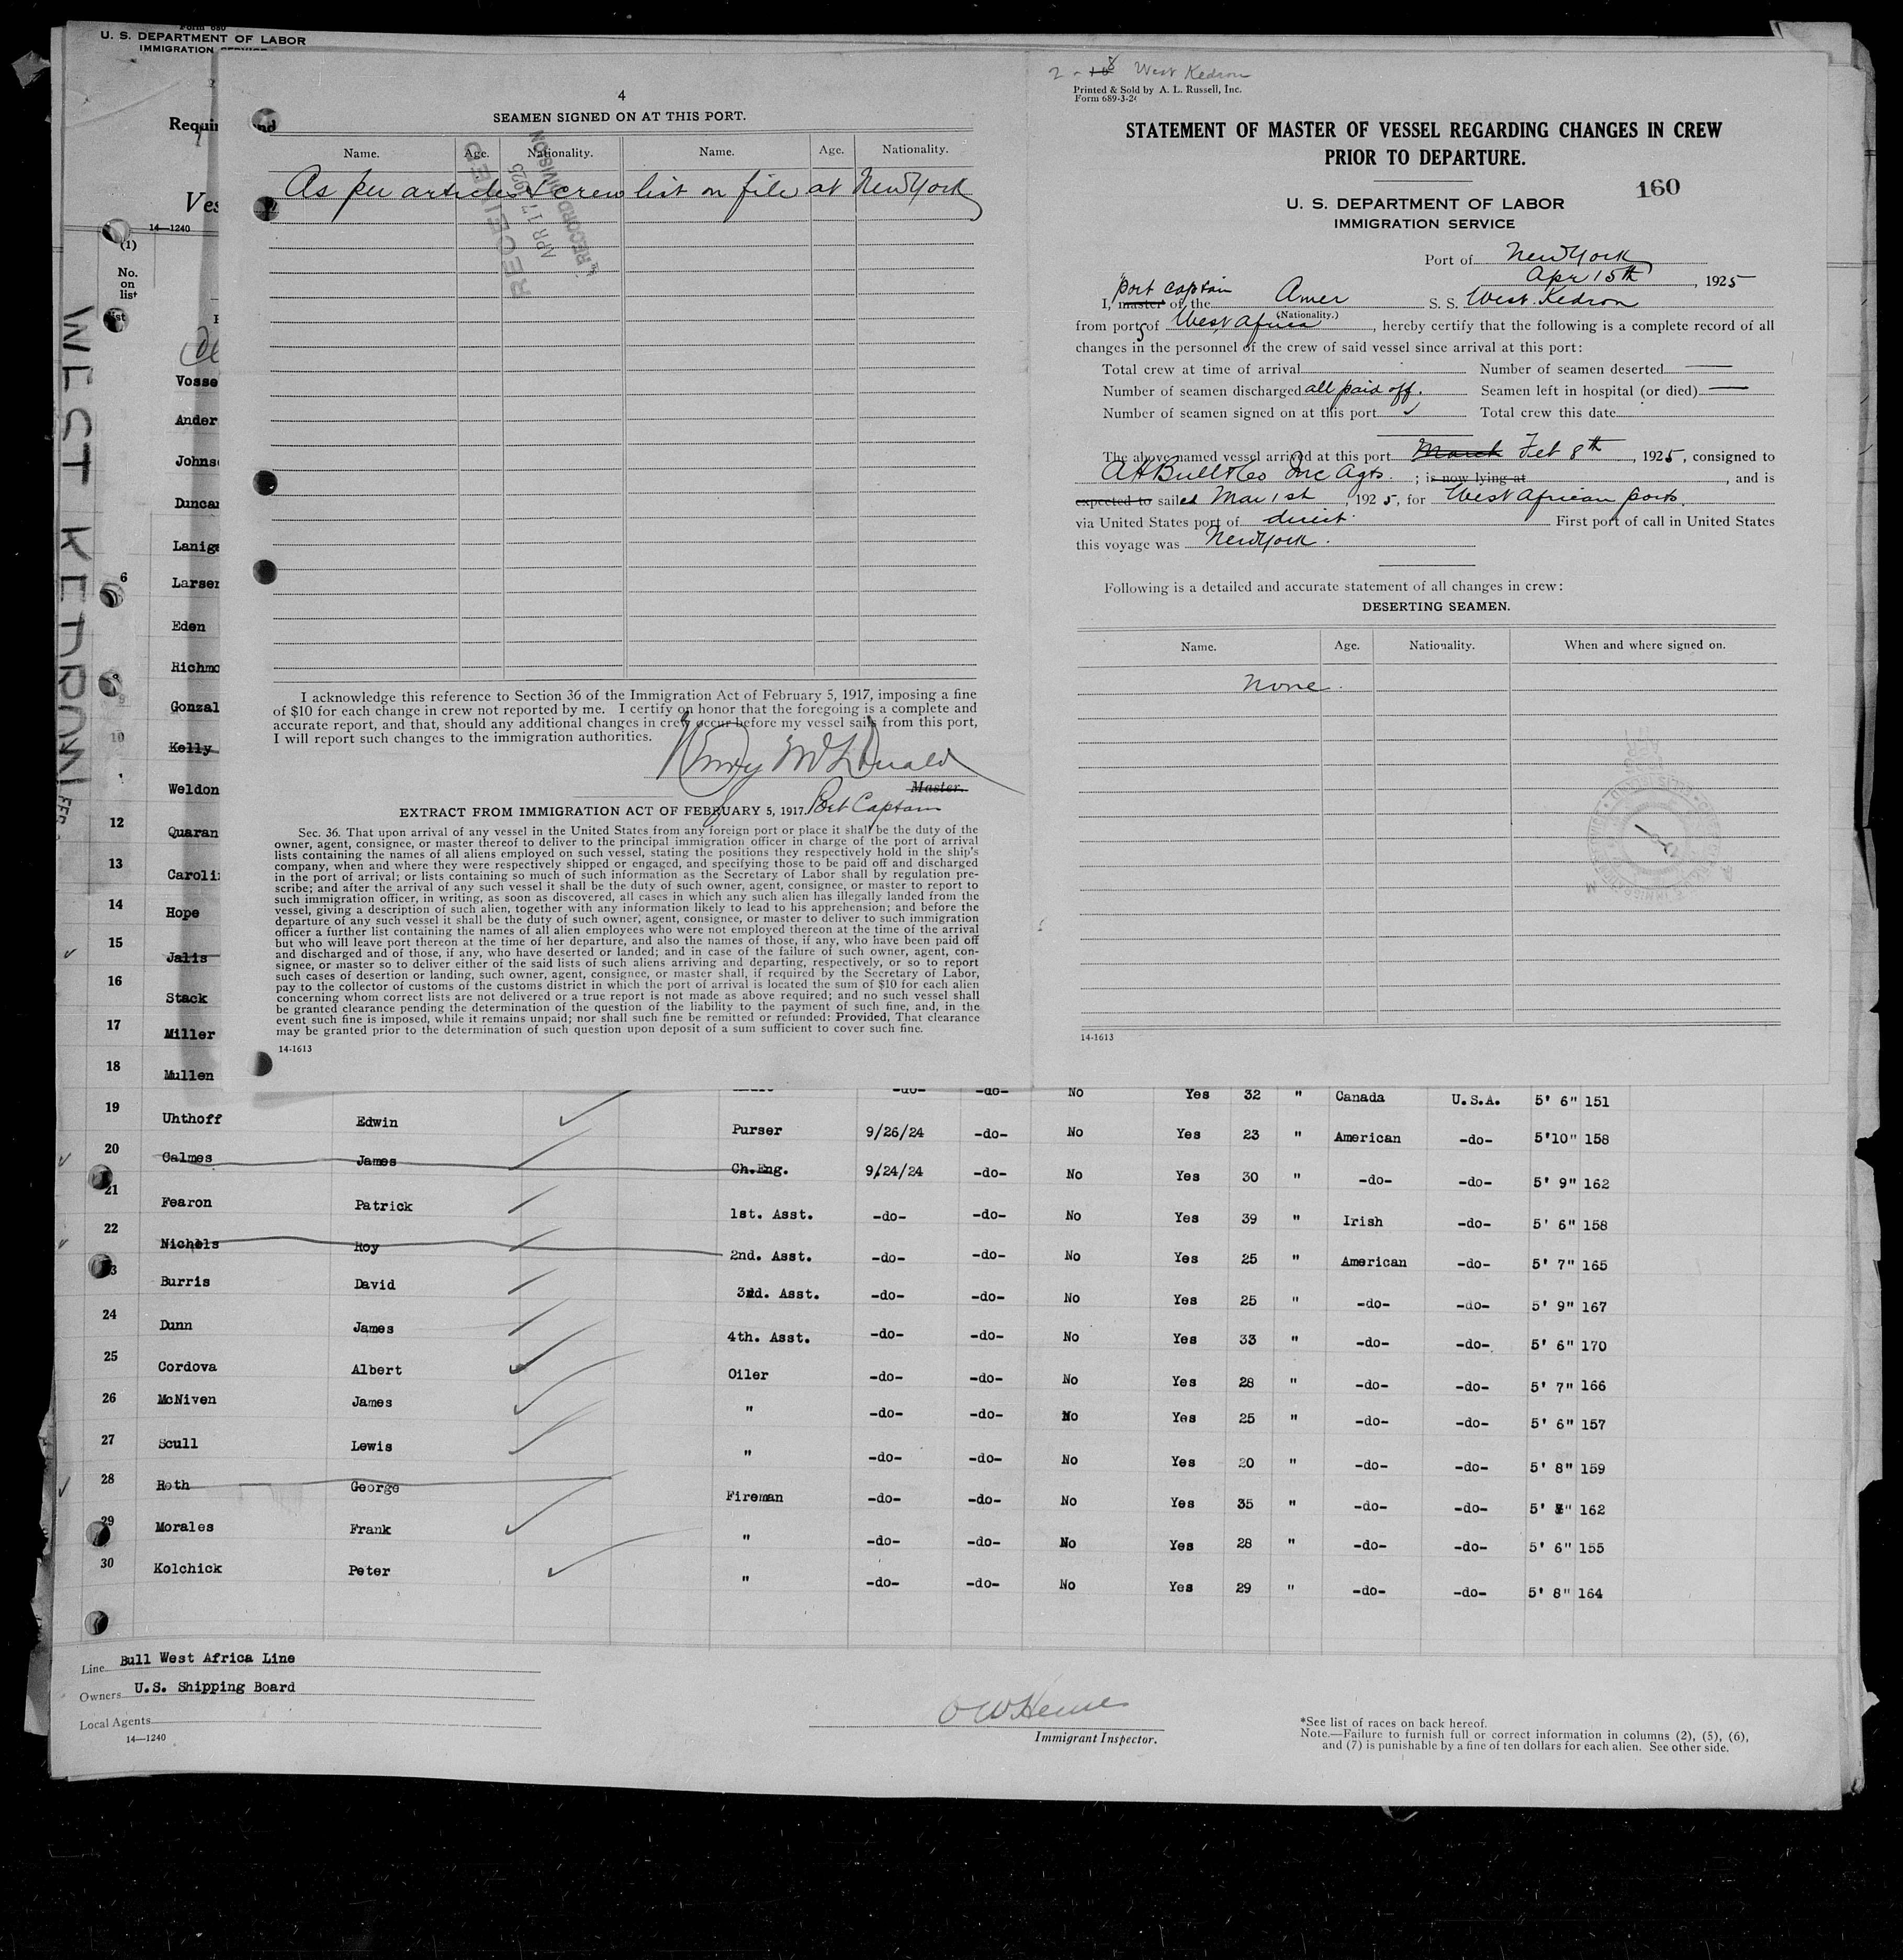 Form 680
U. S. DEPARTMENT OF LABOR
IMMIGRATION SERVICE
Requir
Ves
14—1240
(1)
No.
on
list
WEST KEDRON
Vosse
Ander
Johns
Duncan
Laniga
6 Larsen
Eden
Richmo
Gonzal
10 Kelly
Weldon
12 Quaran
13 Caroli
14 Hope
15 Jalis
16 Stack
17 Miller
18 Mullen
4
SEAMEN SIGNED ON AT THIS PORT.
Name. Age. Nationality. Name. Age. Nationality.
As per articles & crew list on file at New York
RECEIVED
APR 17 1925
RECORD DIVISION
I acknowledge this reference to Section 36 of the Immigration Act of February 5, 1917, imposing a fine
of $10 for each change in crew not reported by me. I certify on honor that the foregoing is a complete and
accurate report, and that, should any additional changes in crew occur before my vessel sails from this port,
I will report such changes to the immigration authorities.
Henry McDonald
Master.
Port Captain
EXTRACT FROM IMMIGRATION ACT OF FEBRUARY 5, 1917.
Sec. 36. That upon arrival of any vessel in the United States from any foreign port or place it shall be the duty of the
owner, agent, consignee, or master thereof to deliver to the principal immigration officer in charge of the port of arrival
lists containing the names of all aliens employed on such vessel, stating the positions they respectively hold in the ship's
company, when and where they were respectively shipped or engaged, and specifying those to be paid off and discharged
in the port of arrival; or lists containing so much of such information as the Secretary of Labor shall by regulation pre-
scribe; and after the arrival of any such vessel it shall be the duty of such owner, agent, consignee, or master to report to
such immigration officer, in writing, as soon as discovered, all cases in which any such alien has illegally landed from the
vessel, giving a description of such alien, together with any information likely to lead to his apprehension; and before the
departure of any such vessel it shall be the duty of such owner, agent, consignee, or master to deliver to such immigration
officer a further list containing the names of all alien employees who were not employed thereon at the time of the arrival
but who will leave port thereon at the time of her departure, and also the names of those, if any, who have been paid off
and discharged and of those, if any, who have deserted or landed; and in case of the failure of such owner, agent, con-
signee, or master so to deliver either of the said lists of such aliens arriving and departing, respectively, or so to report
such cases of desertion or landing, such owner, agent, consignee, or master shall, if required by the Secretary of Labor,
pay to the collector of customs of the customs district in which the port of arrival is located the sum of $10 for each alien
concerning whom correct lists are not delivered or a true report is not made as above required; and no such vessel shall
be granted clearance pending the determination of the question of the liability to the payment of such fine, and, in the
event such fine is imposed, while it remains unpaid; nor shall such fine be remitted or refunded: Provided, That clearance
may be granted prior to the determination of such question upon deposit of a sum sufficient to cover such fine.
14-1613
2 - 8 West Kedron
Printed & Sold by A. L. Russell, Inc.
Form 689-3-2
STATEMENT OF MASTER OF VESSEL REGARDING CHANGES IN CREW
PRIOR TO DEPARTURE.
160
U. S. DEPARTMENT OF LABOR
IMMIGRATION SERVICE
Port of New York
Apr 15th, 1925
port captain
I, master of the Amer S. S. West Kedron
(Nationality.)
from ports of West Africa, hereby certify that the following is a complete record of all
changes in the personnel of the crew of said vessel since arrival at this port:
Total crew at time of arrival Number of seamen deserted —
Number of seamen discharged all paid off. Seamen left in hospital (or died) —
Number of seamen signed on at this port ✓ Total crew this date
The above named vessel arrived at this port March Feb 8th, 1925, consigned to
A H Bull & Co Inc Agts. ; is now lying at , and is
expected to sailed Mar 1st, 1925, for West African ports.
via United States port of direct. First port of call in United States
this voyage was New York.
Following is a detailed and accurate statement of all changes in crew:
DESERTING SEAMEN.
Name. Age. Nationality. When and where signed on.
None.
14-1613
-do- -do- No Yes 32 " Canada U.S.A. 5' 6" 151
19 Uhthoff Edwin Purser 9/26/24 -do- No Yes 23 " American -do- 5'10" 158
20 Calmes James Ch.Eng. 9/24/24 -do- No Yes 30 " -do- -do- 5' 9" 162
21 Fearon Patrick 1st. Asst. -do- -do- No Yes 39 " Irish -do- 5' 6" 158
22 Nichols Roy 2nd. Asst. -do- -do- No Yes 25 " American -do- 5' 7" 165
23 Burris David 3rd. Asst. -do- -do- No Yes 25 " -do- -do- 5' 9" 167
24 Dunn James 4th. Asst. -do- -do- No Yes 33 " -do- -do- 5' 6" 170
25 Cordova Albert Oiler -do- -do- No Yes 28 " -do- -do- 5' 7" 166
26 McNiven James " -do- -do- No Yes 25 " -do- -do- 5' 6" 157
27 Scull Lewis " -do- -do- No Yes 20 " -do- -do- 5' 8" 159
28 Roth George Fireman -do- -do- No Yes 35 " -do- -do- 5' 162
29 Morales Frank " -do- -do- No Yes 28 " -do- -do- 5' 6" 155
30 Kolchick Peter " -do- -do- No Yes 29 " -do- -do- 5' 8" 164
Line Bull West Africa Line
Owners U.S. Shipping Board
Local Agents
14—1240
Immigrant Inspector.
*See list of races on back hereof.
Note.—Failure to furnish full or correct information in columns (2), (5), (6),
and (7) is punishable by a fine of ten dollars for each alien. See other side.